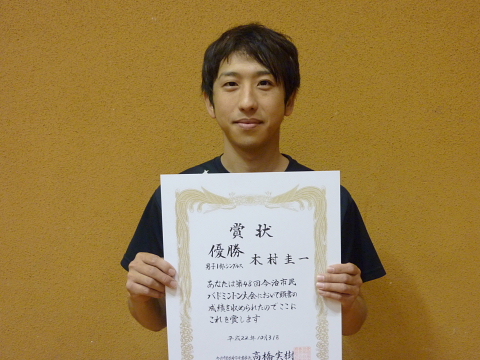 賞状
優勝
男子1部シングルス 木村圭一
あなたは第48回今治市民
バドミントン大会において頭書の
成績を収められたのでここに
これを賞します
高橋実樹